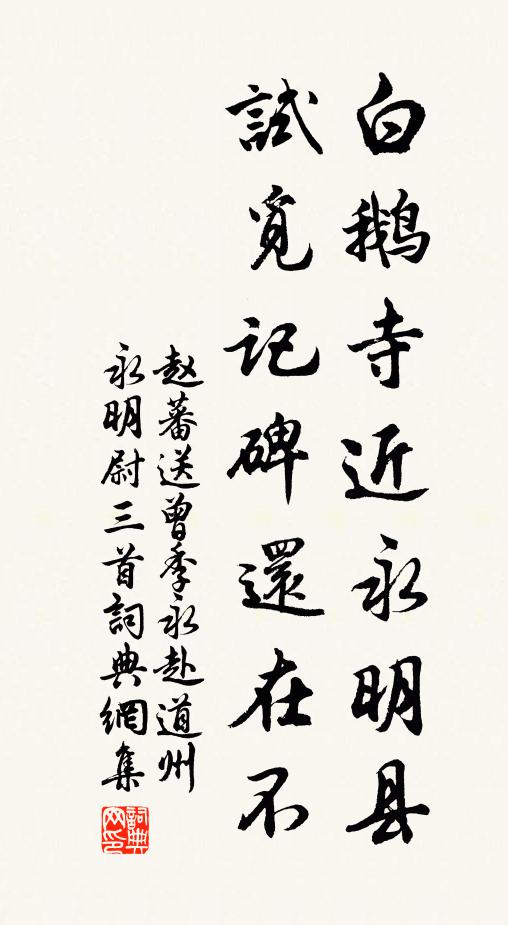 白鹅寺近永明县
試覓記碑還在不
赵蕃送曾季永赴道州
永明尉三首詞典網集
詞典网印